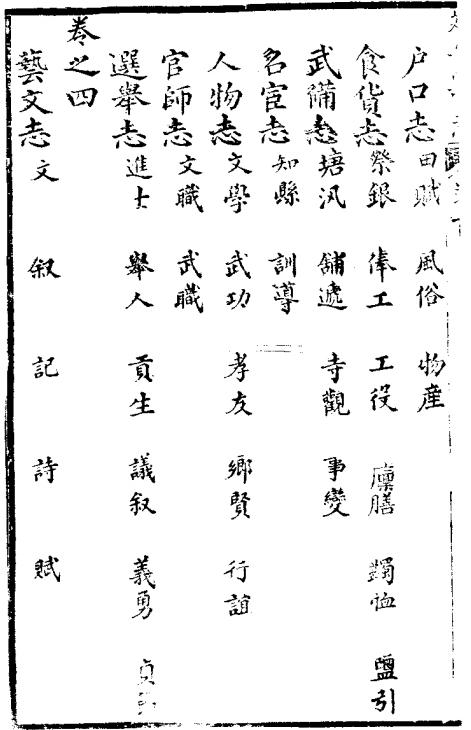 户口志 田賦 風俗 物產
食貨志 祭銀 俸工 工役 廩膳 蠲恤 鹽引
武備志 塘汛 舖遞 寺觀 事變
名宦志 知縣 訓導
人物志 文學 武功 孝友 鄉賢 行誼
官師志 文職 武職
選舉志 進士 舉人 貢生 議叙 義勇 貞
卷之四
藝文志 文 叙 記 詩 賦